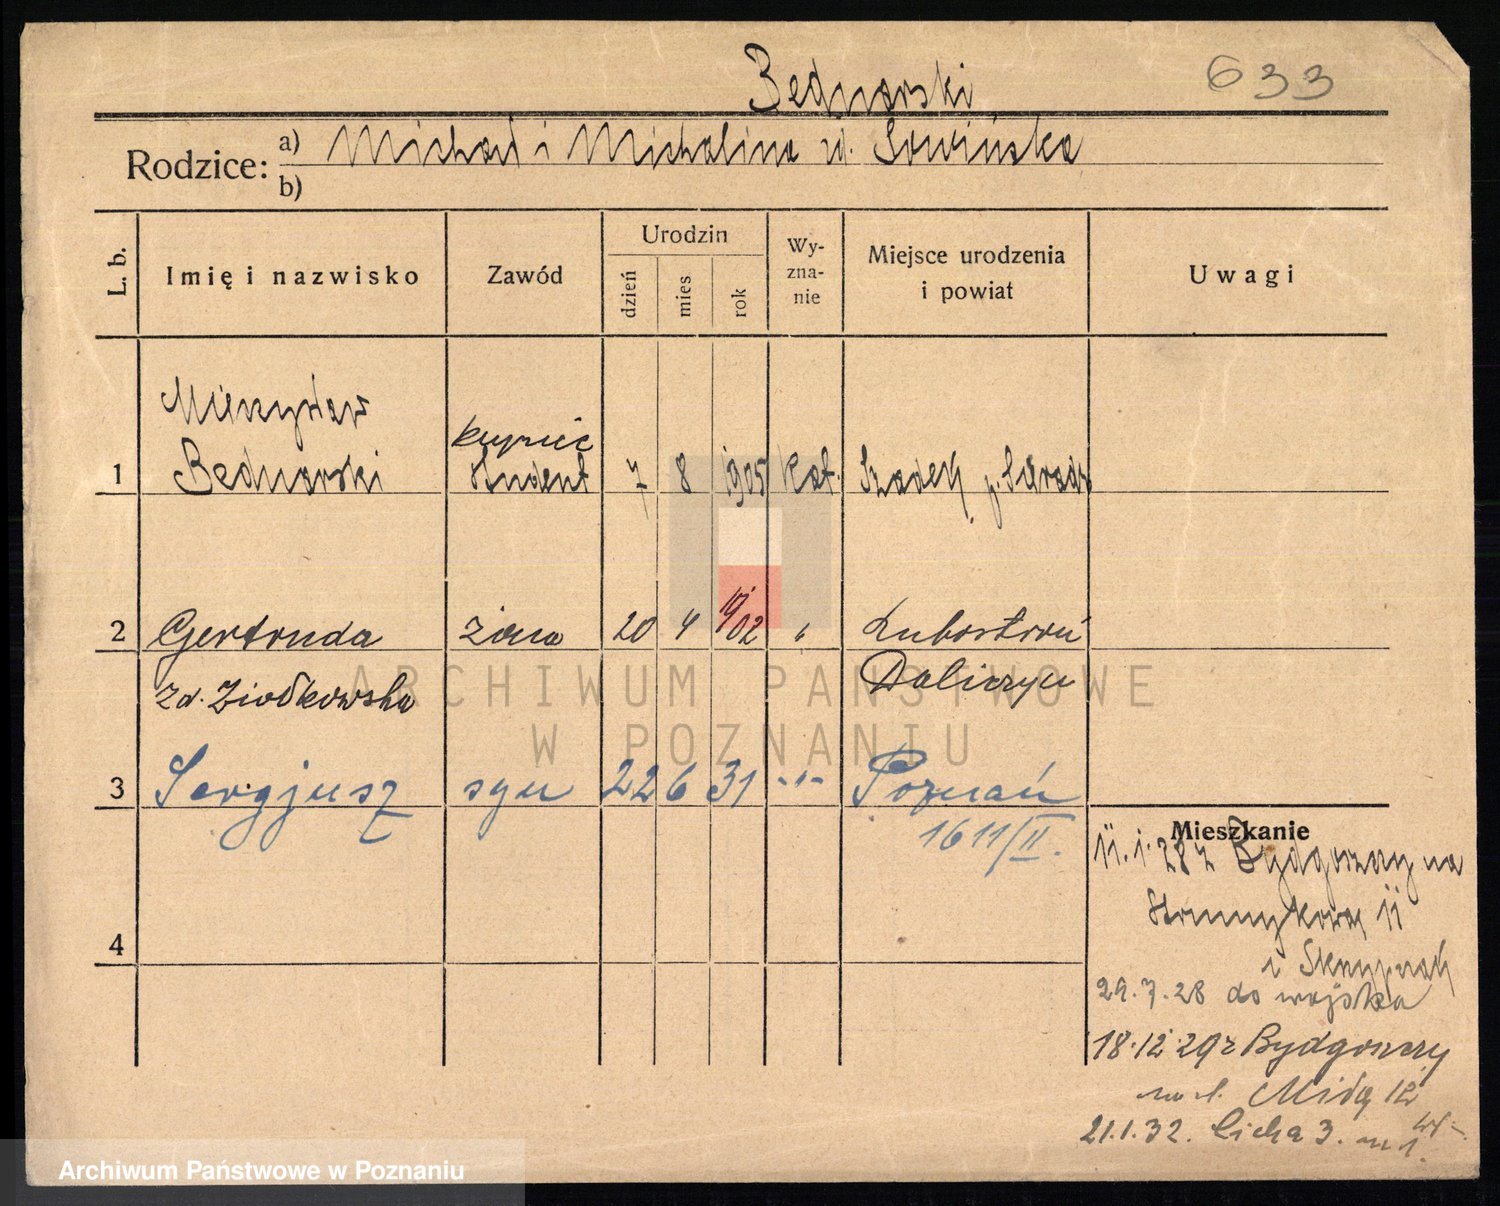 Bednarski
633
Rodzice:
a) Michał i Michalina zd. Sowińska
b)
L. b.
Imię i nazwisko
Zawód
Urodzin
dzień
mies
rok
Wy-
zna-
nie
Miejsce urodzenia
i powiat
Uwagi
Mieczysław
kupiec
1 Bednarski student 7 8 1905 kat. Szadek p. Sieradz
2 Gertruda żona 20 4 19/02 " Lubostroń
zd. Ziółkowska
3 Sergjusz syn 22 6 31 -"- Poznań
1611/II.
4
Mieszkanie
11.1.28 z Bydgoszczy na
Strumykową 11
u
29.7.28 do wojska
18.12.29 z Bydgoszczy
na ul. Miłą 12
21.1.32. Cicha 3. m 1.
ARCHIWUM PAŃSTWOWE
W POZNANIU
Archiwum Państwowe w Poznaniu